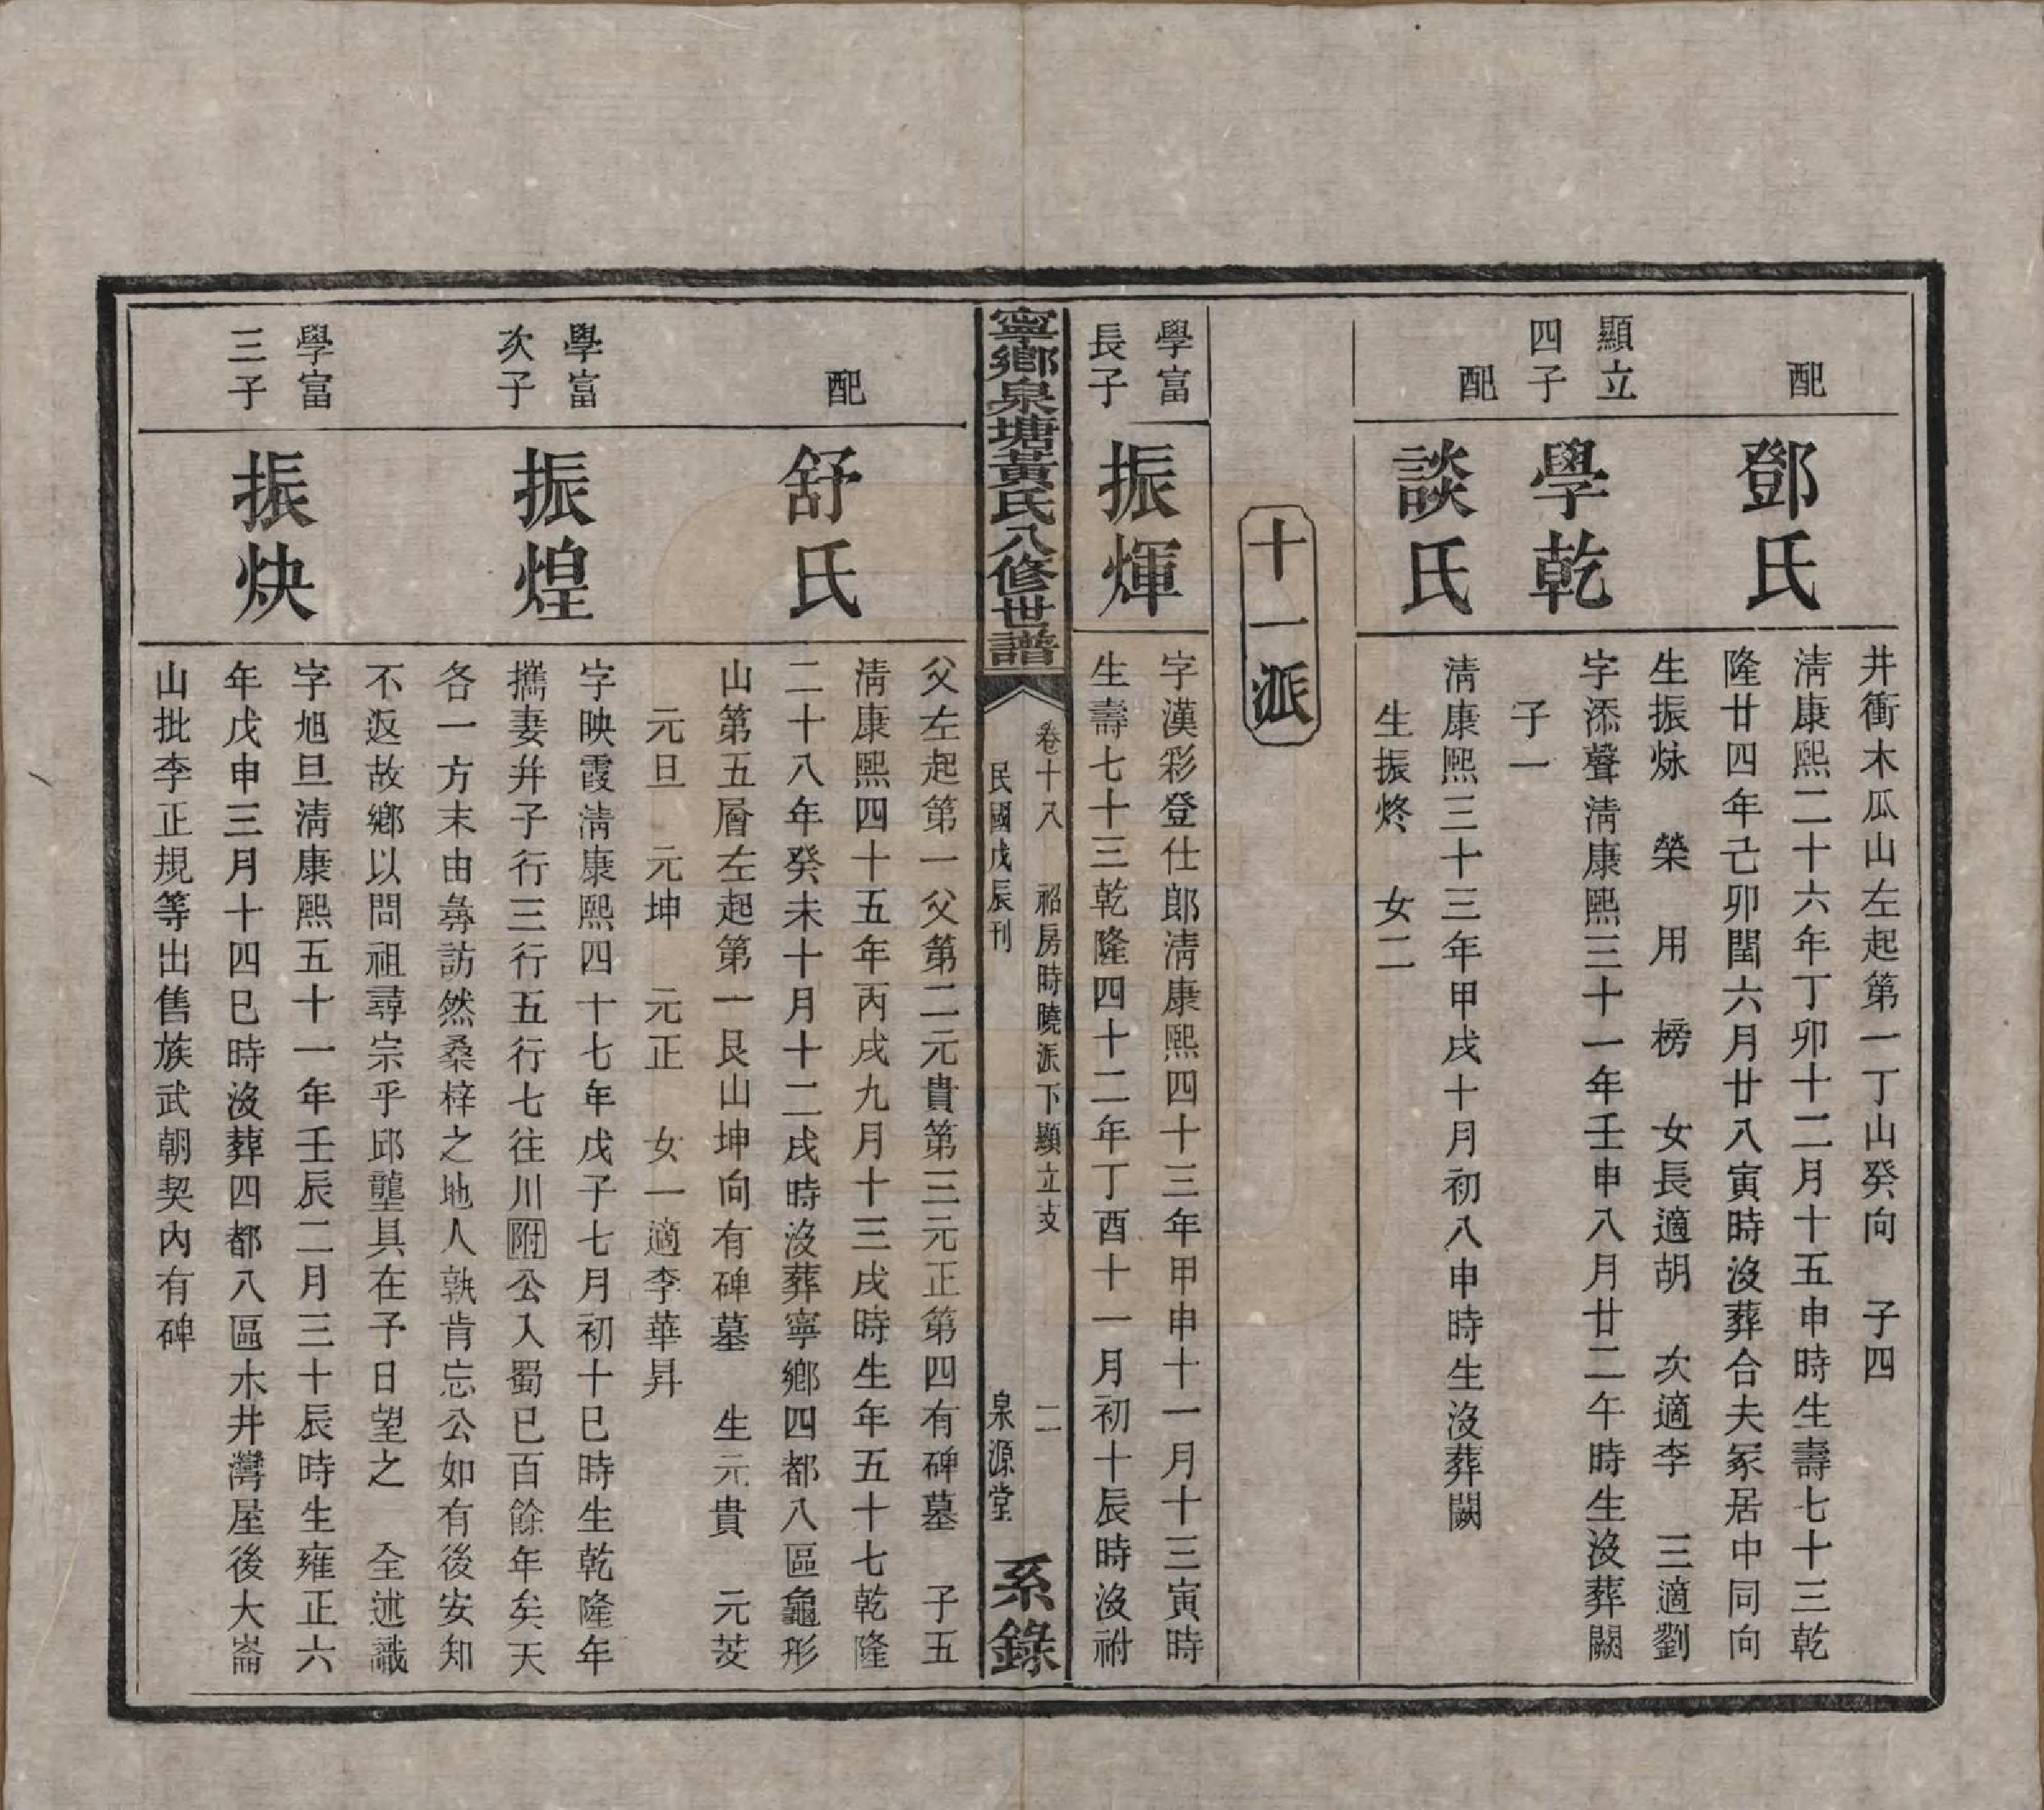 井衝木瓜山左起第一丁山癸向　子四
配
鄧氏
淸康熙二十六年丁卯十二月十五申時生壽七十三乾
隆廿四年己卯閏六月廿八寅時沒葬合夫冢居中同向
生振炢　榮　用　榜　女長適胡　次適李　三適劉
顯立
四子
學乾
字添聲淸康熙三十一年壬申八月廿二午時生沒葬闕
子一
配
談氏
淸康熙三十三年甲戌十月初八申時生沒葬闕
生振炵　女二
十一派
學富
長子
振煇
字漢彩登仕郎淸康熙四十三年甲申十一月十三寅時
生壽七十三乾隆四十二年丁酉十一月初十辰時沒祔
寧鄉泉塘黃氏八修世譜
卷十八　祒房時曉派下顯立支　二
民國戊辰刊　泉源堂
系錄
父左起第一父第二元貴第三元正第四有碑墓　子五
配
舒氏
淸康熙四十五年丙戌九月十三戌時生年五十七乾隆
二十八年癸未十月十二戌時沒葬寧鄉四都八區龜形
山第五層左起第一艮山坤向有碑墓　生元貴　元芠
元旦　元坤　元正　女一適李華昇
學富
次子
振煌
字映霞淸康熙四十七年戊子七月初十巳時生乾隆年
攜妻幷子行三行五行七往川附公入蜀已百餘年矣天
各一方末由彜訪然桑梓之地人孰肯忘公如有後安知
不返故鄉以問祖尋宗乎邱壟具在予日望之　全述識
學富
三子
振炔
字旭旦淸康熙五十一年壬辰二月三十辰時生雍正六
年戊申三月十四巳時沒葬四都八區木井灣屋後大崙
山批李正規等出售族武朝契內有碑